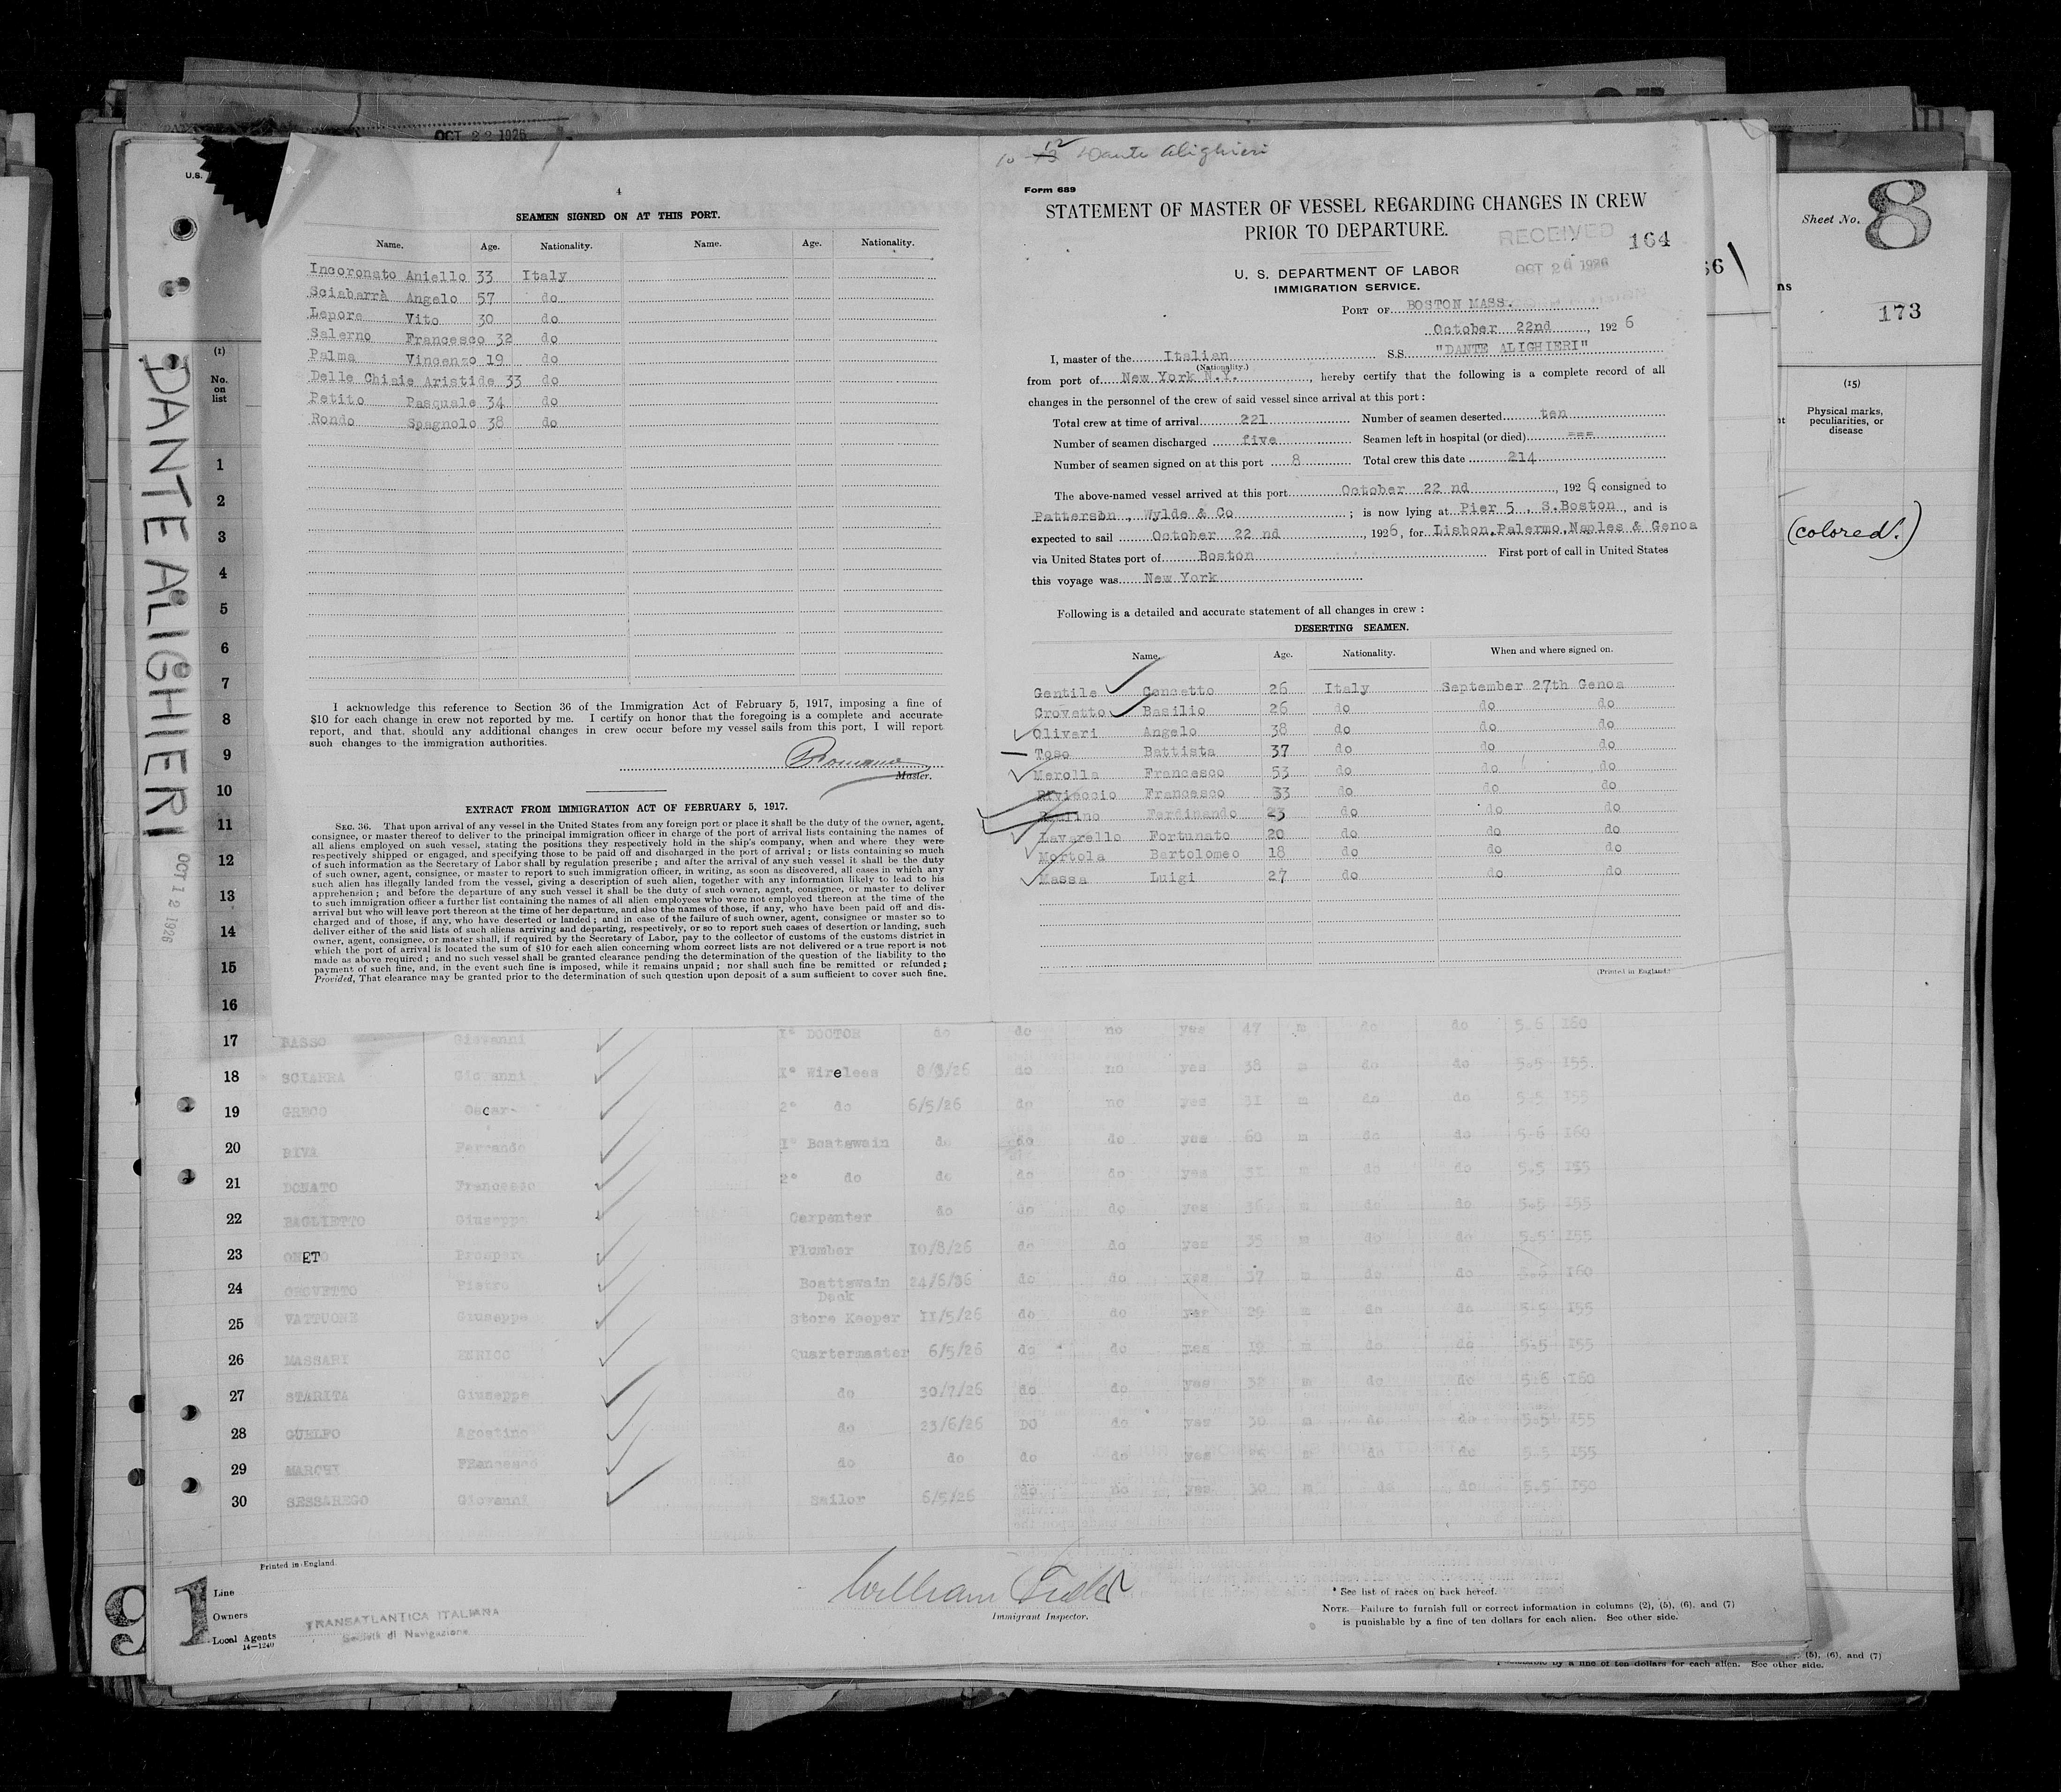 OCT 22 1926
U.S.
4
SEAMEN SIGNED ON AT THIS PORT.
Name. Age. Nationality. Name. Age. Nationality.
Incoronato Aniello 33 Italy
Sciabarrà Angelo 57 do
Lepore Vito 30 do
Salerno Francesco 32 do
Palma Vincenzo 19 do
Delle Chiaie Aristide 33 do
Petito Pasquale 34 do
Rondo Spagnolo 38 do
I acknowledge this reference to Section 36 of the Immigration Act of February 5, 1917, imposing a fine of
$10 for each change in crew not reported by me. I certify on honor that the foregoing is a complete and accurate
report, and that, should any additional changes in crew occur before my vessel sails from this port, I will report
such changes to the immigration authorities.
Master.
EXTRACT FROM IMMIGRATION ACT OF FEBRUARY 5, 1917.
SEC. 36. That upon arrival of any vessel in the United States from any foreign port or place it shall be the duty of the owner, agent,
consignee, or master thereof to deliver to the principal immigration officer in charge of the port of arrival lists containing the names of
all aliens employed on such vessel, stating the positions they respectively hold in the ship's company, when and where they were
respectively shipped or engaged, and specifying those to be paid off and discharged in the port of arrival; or lists containing so much
of such information as the Secretary of Labor shall by regulation prescribe; and after the arrival of any such vessel it shall be the duty
of such owner, agent, consignee, or master to report to such immigration officer, in writing, as soon as discovered, all cases in which any
such alien has illegally landed from the vessel, giving a description of such alien, together with any information likely to lead to his
apprehension; and before the departure of any such vessel it shall be the duty of such owner, agent, consignee, or master to deliver
to such immigration officer a further list containing the names of all alien employees who were not employed thereon at the time of the
arrival but who will leave port thereon at the time of her departure, and also the names of those, if any, who have been paid off and dis-
charged and of those, if any, who have deserted or landed; and in case of the failure of such owner, agent, consignee or master so to
deliver either of the said lists of such aliens arriving and departing, respectively, or so to report such cases of desertion or landing, such
owner, agent, consignee, or master shall, if required by the Secretary of Labor, pay to the collector of customs of the customs district in
which the port of arrival is located the sum of $10 for each alien concerning whom correct lists are not delivered or a true report is not
made as above required; and no such vessel shall be granted clearance pending the determination of the question of the liability to the
payment of such fine, and, in the event such fine is imposed, while it remains unpaid; nor shall such fine be remitted or refunded;
Provided, That clearance may be granted prior to the determination of such question upon deposit of a sum sufficient to cover such fine.
10 12 Dante Alighieri
Form 689
STATEMENT OF MASTER OF VESSEL REGARDING CHANGES IN CREW
PRIOR TO DEPARTURE.
RECEIVED
164
OCT 26 1926
U. S. DEPARTMENT OF LABOR
IMMIGRATION SERVICE.
PORT OF BOSTON MASS.
October 22nd, 1926
I, master of the Italian SS "DANTE ALIGHIERI"
(Nationality.)
from port of New York N.Y., hereby certify that the following is a complete record of all
changes in the personnel of the crew of said vessel since arrival at this port:
Total crew at time of arrival 221 Number of seamen deserted ten
Number of seamen discharged five Seamen left in hospital (or died) ===
Number of seamen signed on at this port 8 Total crew this date 214
The above-named vessel arrived at this port October 22 nd, 1926 consigned to
Patterson, Wylde & Co; is now lying at Pier 5, S.Boston, and is
expected to sail October 22 nd, 1926, for Lisbon,Palermo,Naples & Genoa
via United States port of Boston First port of call in United States
this voyage was New York
Following is a detailed and accurate statement of all changes in crew:
DESERTING SEAMEN.
Name. Age. Nationality. When and where signed on.
Gentile Concetto 26 Italy September 27th Genoa
Crovetto Basilio 26 do do do
Olivari Angelo 38 do do do
Toso Battista 37 do do do
Merolla Francesco 53 do do do
Rivieccio Francesco 33 do do do
Ferdinando 23 do do do
Lavarello Fortunato 20 do do do
Mortola Bartolomeo 18 do do do
Massa Luigi 27 do do do
(Printed in England.)
Sheet No. 8
173
(15)
Physical marks,
peculiarities, or
disease
(colored.)
DANTE ALIGHIERI OCT 12 1926
(1)
No.
on
list
1
2
3
4
5
6
7
8
9
10
11
12
13
14
15
16
17 BASSO Giovanni I° DOCTOR do do no yes 47 m do do 5.6 I60
18 SCIARRA Giovanni I° Wireless 8/8/26 do no yes 38 m do do 5.5 I55
19 GRECO Oscar 2° do 6/5/26 do no yes 31 m do do 5.5 I55
20 RIVA Fernando I° Boatswain do do do yes 60 m do do 5.6 I60
21 DONATO Francesco 2° do do do do yes 31 m do do 5.5 I55
22 BAGLIETTO Giuseppe Carpenter do do do yes 36 m do do 5.5 I55
23 Prospero Plumber 10/8/26 do do yes 35 m do do 5.5 I55
24 CROVETTO Pietro Boattswain Deck 24/6/26 do do yes 37 m do do 5.6 I60
25 VATTUONE Giuseppe Store Keeper 11/5/26 do do yes 29 m do do 5.5 I55
26 MASSARI ENRICO Quartermaster 6/5/26 do do yes 19 m do do 5.5 I55
27 STARITA Giuseppe do 30/7/26 do do yes 32 m do do 5.6 I60
28 GUELFO Agostino do 23/6/26 DO do yes 30 m do do 5.5 I55
29 FRancesco do do do do yes m do do 5.5 I55
30 SESSAREGO Giovanni Sailor 6/5/26 do no yes 30 m do do 5.5 I50
Printed in England.
91
Line
Owners TRANSATLANTICA ITALIANA
Local Agents Società di Navigazione
14—1240
William
Immigrant Inspector.
* See list of races on back hereof.
NOTE.—Failure to furnish full or correct information in columns (2), (5), (6), and (7)
is punishable by a fine of ten dollars for each alien. See other side.
(5), (6), and (7)
by a fine of ten dollars for each alien. See other side.